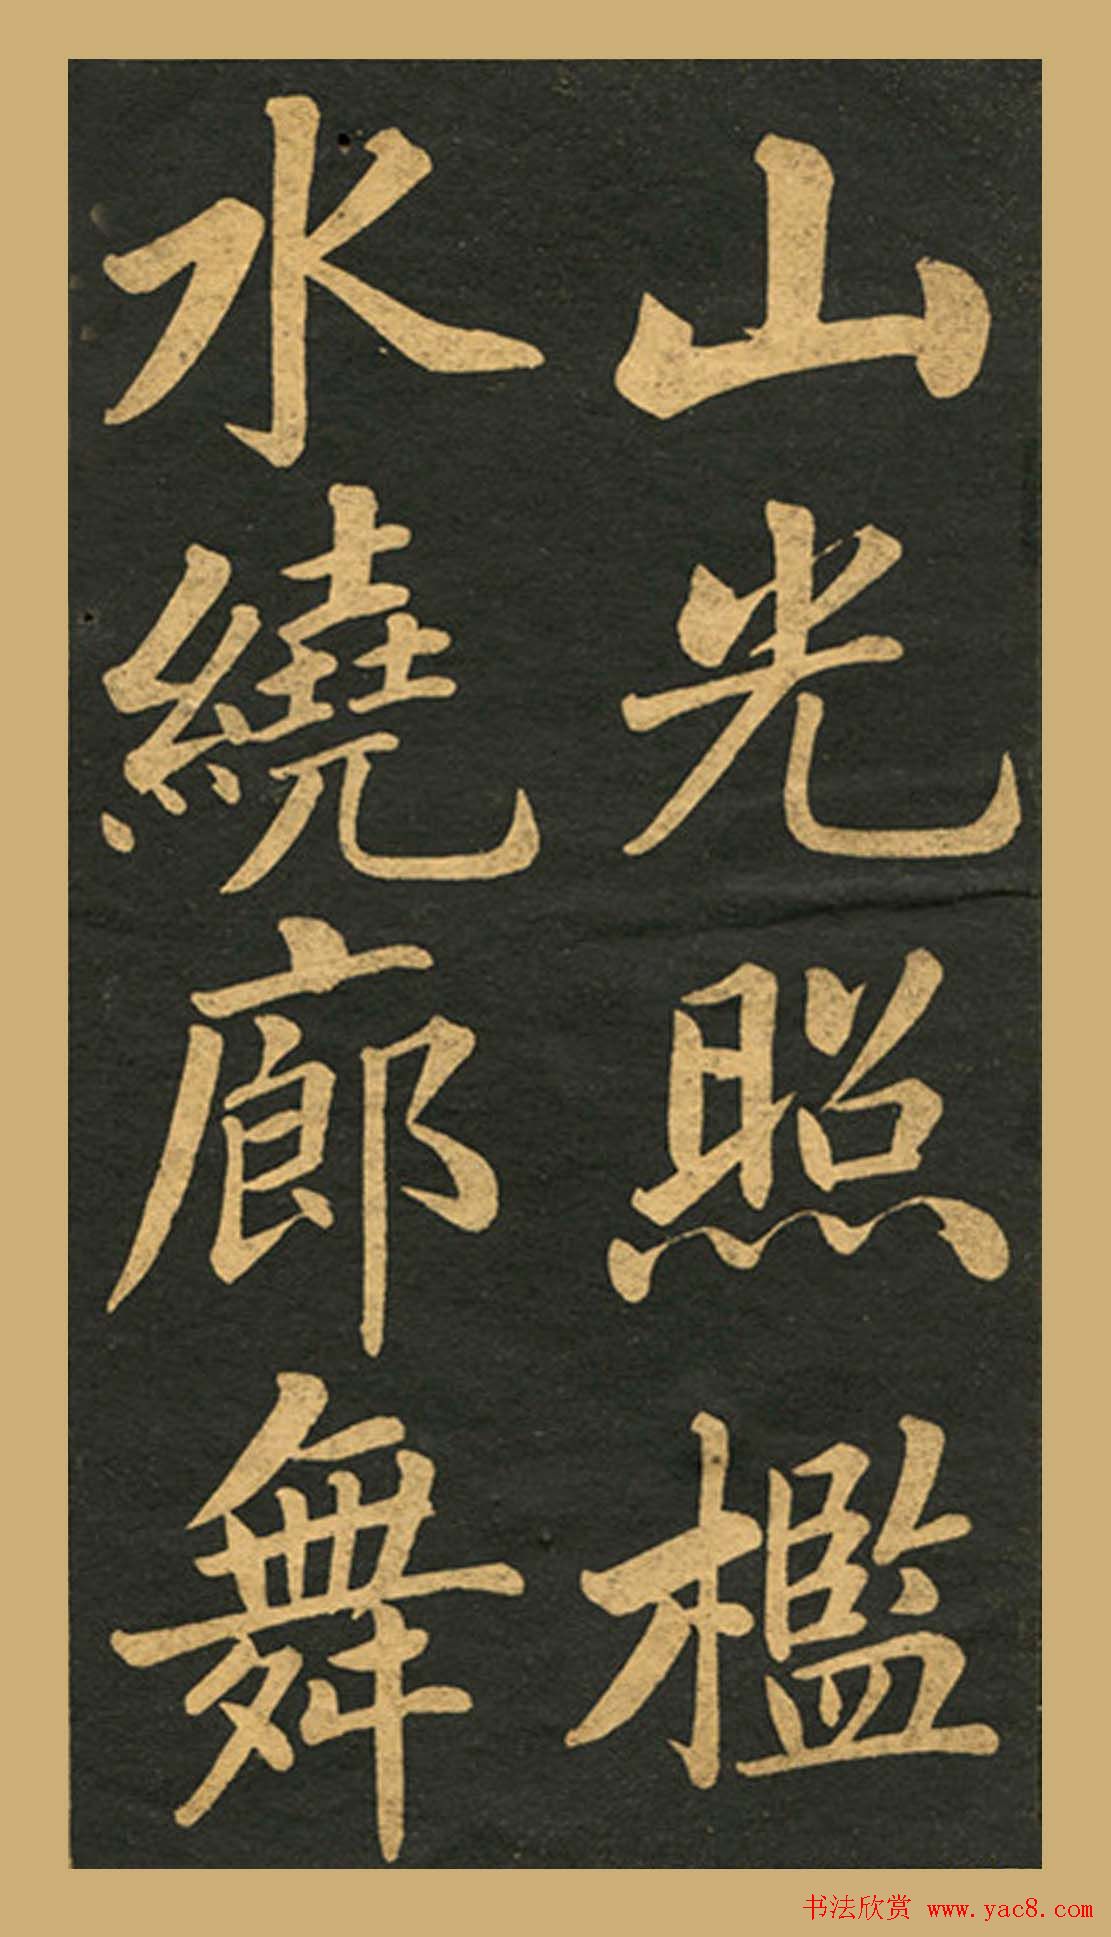 山光照檻
水繞廊舞
书法欣赏 www.yac8.com